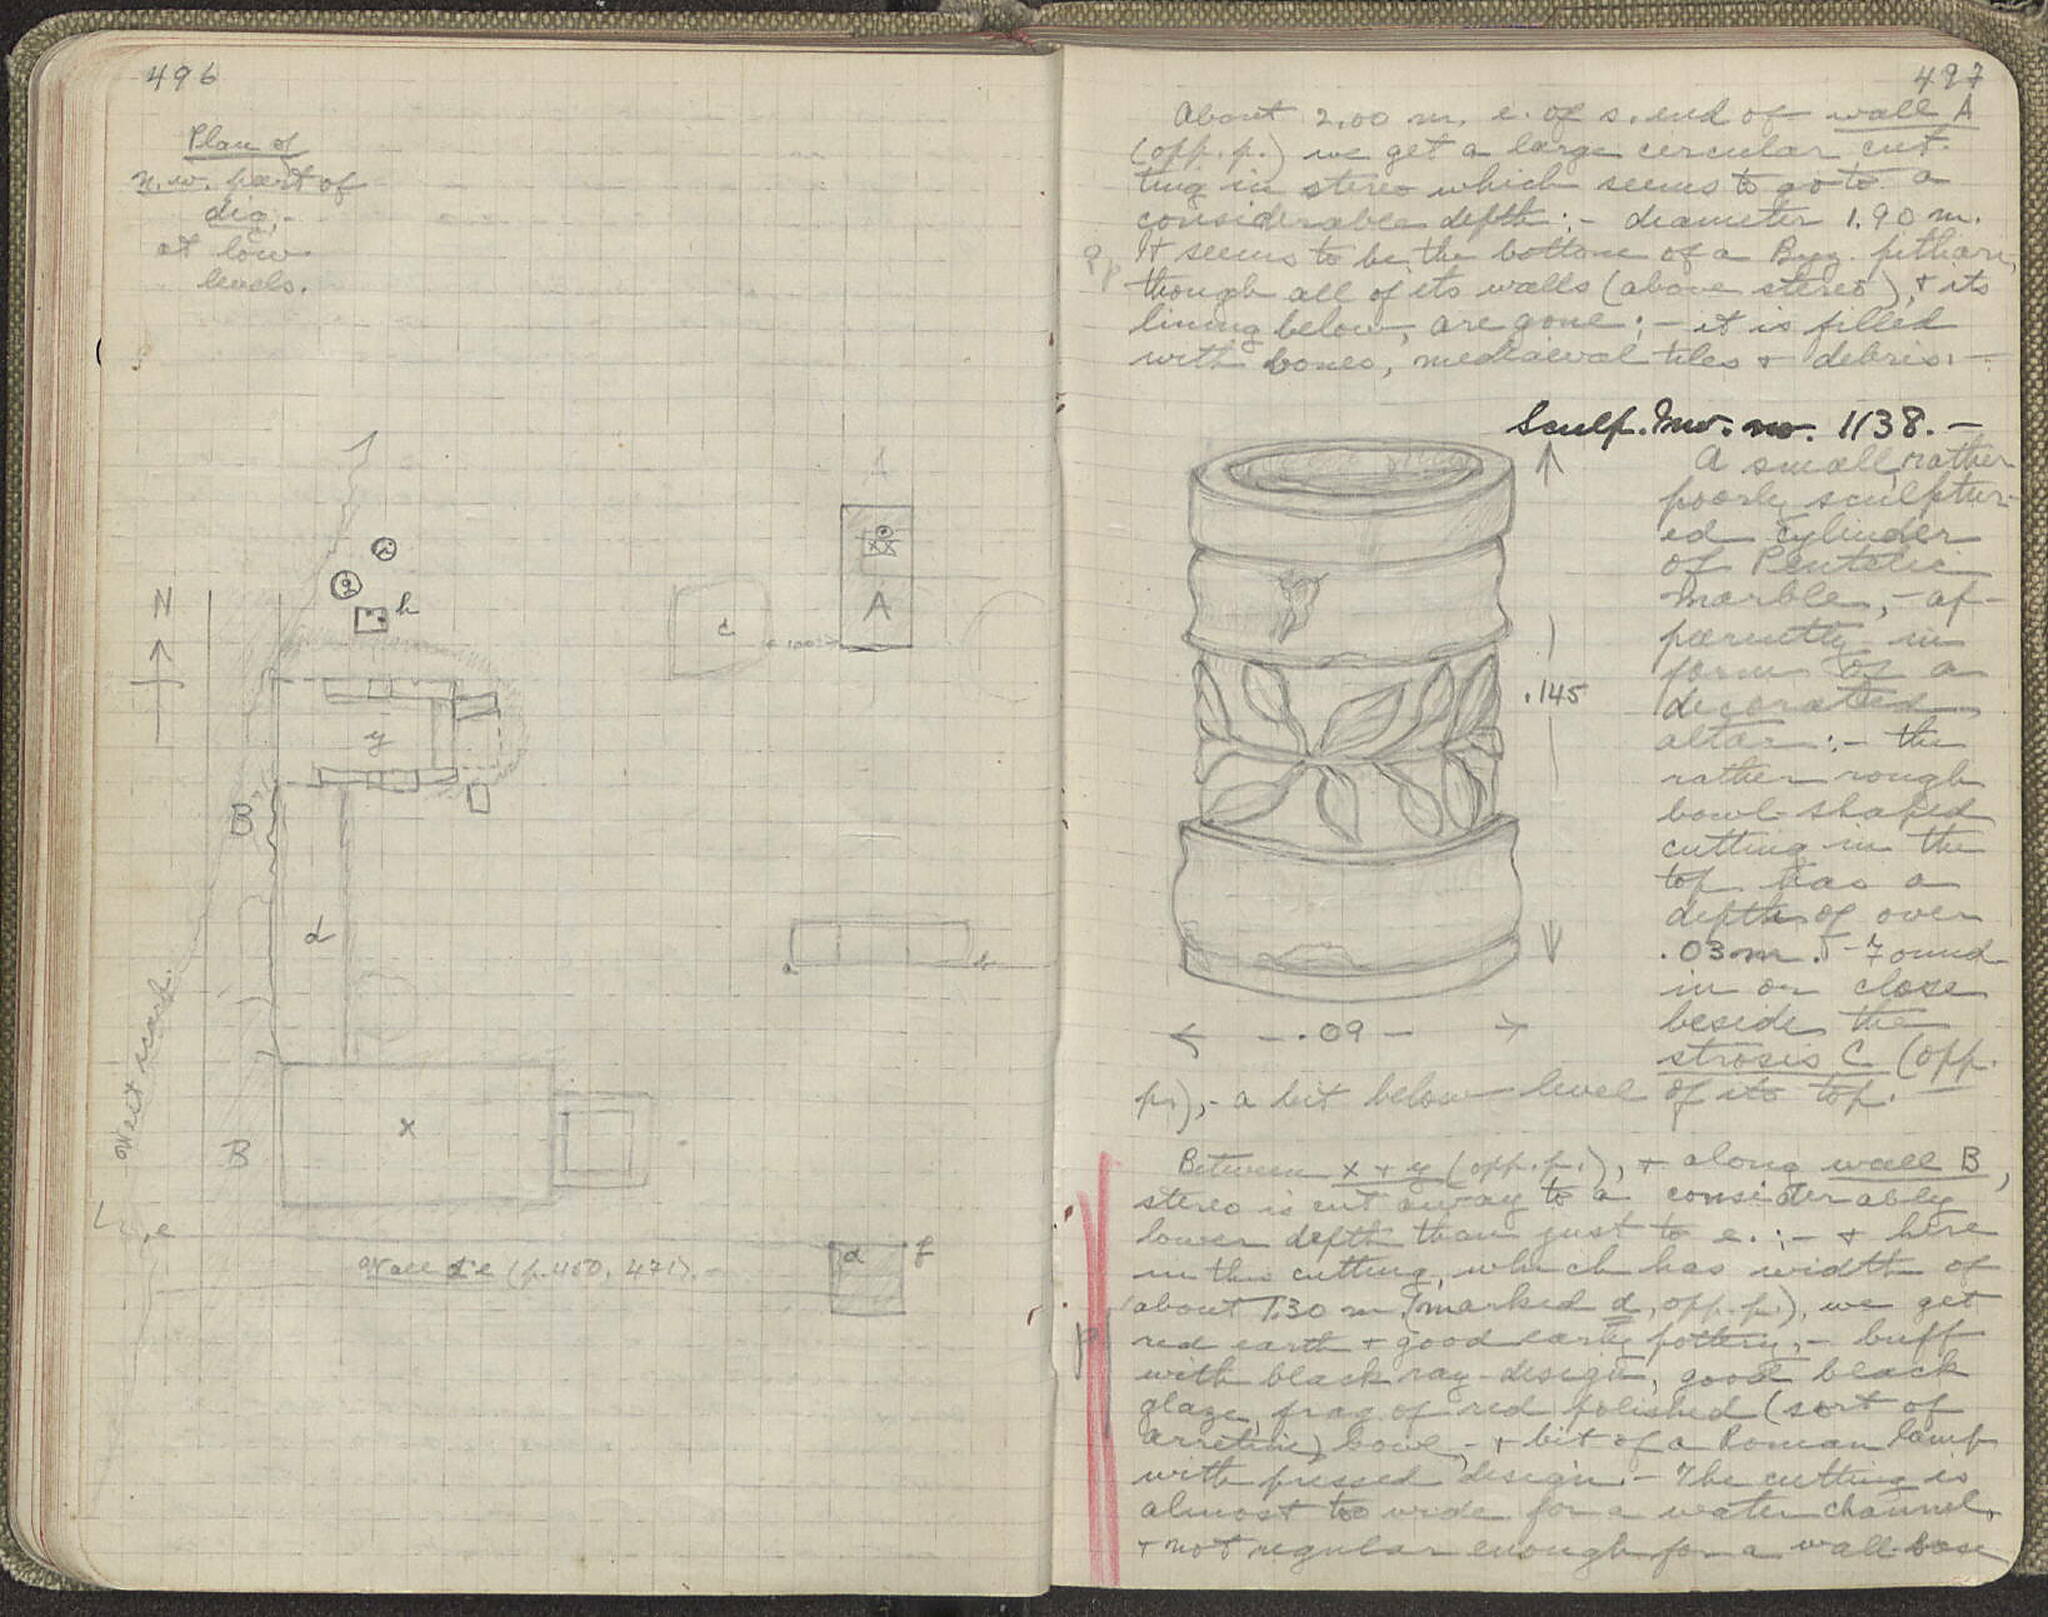 496
Plan of
n.w. part of
dig,-
at low
levels.
A
i
g
h
N
c
1.00
A
y
B
d
a
b
West scarp.
x
B
e
Wall d'e (p. 460, 471).-
d
f
497
About 2.00 m. e. of s. end of wall A
(opp. p.) we get a large circular cut-
ting in stereo which seems to go to a
considerable depth :- diameter 1.90 m.
It seems to be the bottom of a Byz. pithari,
though all of its walls (above stereo), + its
lining below, are gone ;- it is filled
with bones, mediaeval tiles + debris. -
Sculp. Inv. no. 1138. -
A small, rather
poorly sculptur-
ed cylinder
of Pentelic
marble, - ap-
parently in
form of a
decorated
altar :- the
rather rough
bowl-shaped
cutting in the
top has a
depth of over
.03 m. - Found
in or close
beside the
strosis C (opp.
p.),- a bit below level of its top. -
.145
← - .09 - →
Between x + y (opp. p.), + along wall B,
stereo is cut away to a considerably
lower depth than just to e. ;- + here
in this cutting, which has width of
about 1.30 m. (marked d, opp. p.), we get
P
red earth + good early pottery, - buff
with black ray-design, good black
glaze, frag of red polished (sort of
Arretine) bowl, - + bit of a Roman lamp
with pressed design. - The cutting is
almost too wide for a water channel,
+ not regular enough for a wall-base